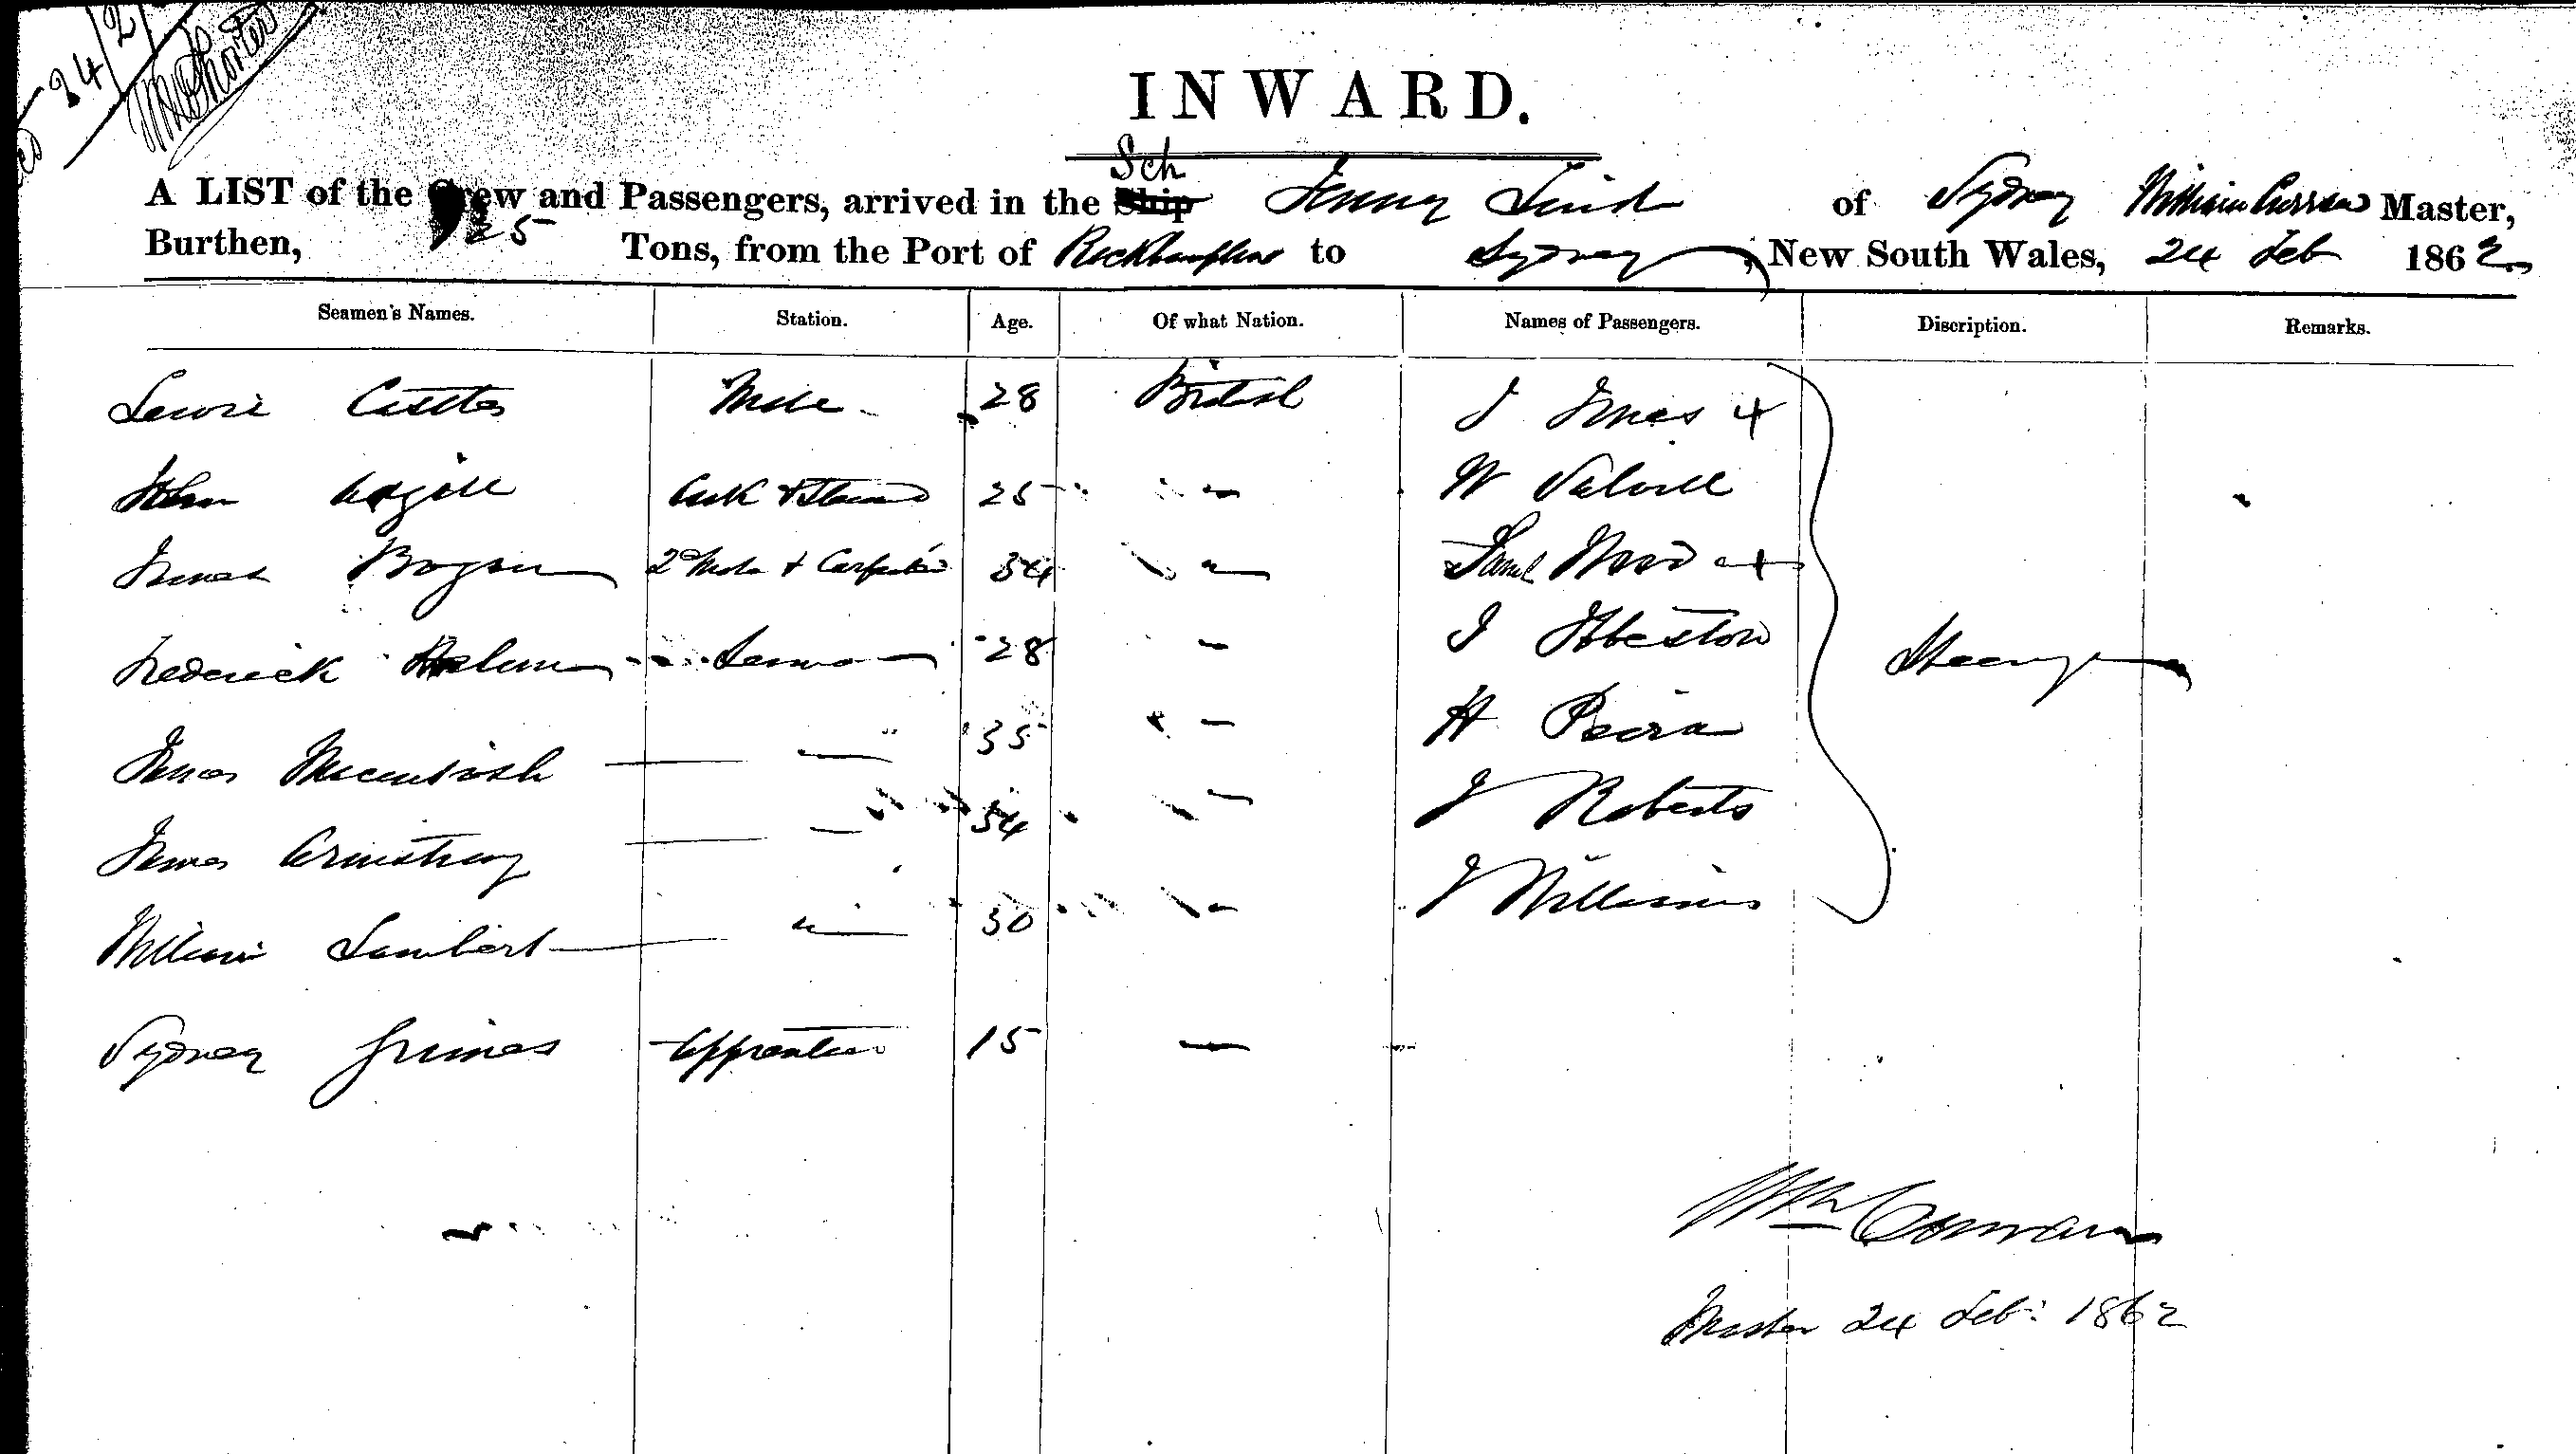 24/2
INWARD.
Sch
A LIST of the Crew and Passengers, arrived in the Ship Jenny Lind of Sydney William Curran Master,
Burthen, Tons, from the Port of Rockhampton to Sydney, New South Wales, 24 Feb 1862
Seamen's Names. Station. Age. Of what Nation. Names of Passengers. Discription. Remarks.
Mate 28 British J Jones
John 25 - W
James 2d Mate + Carpenter 34 " Saml Wood
Frederick Seaman 28 - J
James Mccintosh " 35 - H
James Armstrong " 34 - J Roberts
William Lambert " 30 " J Williams
Sydney Grimes Apprentice 15 -
Steerage
Wm Curran
Master 24 Feb: 1862